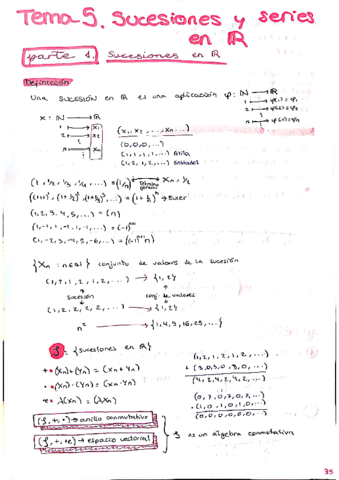 Tema 5. Sucesiones y series
en ℝ
parte 1. Sucesiones en ℝ
Definición
Una SUCESIÓN en ℝ es una aplicación φ: ℕ → ℝ
1 → φ(1) = φ₁
2 → φ(2) = φ₂
n → φ(n) = φn
x: ℕ → ℝ
1 → x₁
2 → x₂
n → xn
(x₁, x₂, ..., xn, ...)
(0, 0, 0, ...)
(1, 1, 1, 1, ...)
(1, 2, 1, 2, ...)
(1, 1/2, 1/3, 1/4, ...) = (1/n) término general
((1+1)¹, (1+1/2)², (1+1/3)³, ...) = (1+1/n)ⁿ → Euler
(1, 2, 3, 4, 5, ...) = (n)
(1, -1, 1, -1, 1, -1, ...) = (-1)ⁿ⁺¹
(1, -2, 3, -4, 5, -6, ...) = ((-1)ⁿ⁺¹ n)
{xn : n∈ℕ} conjunto de valores de la sucesión
(1, 1, 1, 2, 1, 2, ...) → {1, 2}
sucesión conj. de valores
(1, 2, 2, 2, 2, ...) → {1, 2}
n² → {1, 4, 9, 16, 25, ...}
= {sucesiones en ℝ}
+ (xn) + (yn) = (xn + yn)
· (xn) · (yn) = (xn · yn)
λ(xn) = (λxn)
(1, 2, 1, 2, 1, 2, ...)
+ (3, 0, 3, 0, 3, 0, ...)
(4, 2, 4, 2, 4, 2, ...)
(0, 7, 0, 7, 0, 7, ...)
· (1, 0, 1, 0, 1, 0, ...)
(0, 0, 0, 0, 0, 0, ...)
→ anillo conmutativo
→ espacio vectorial
es un álgebra conmutativa
35